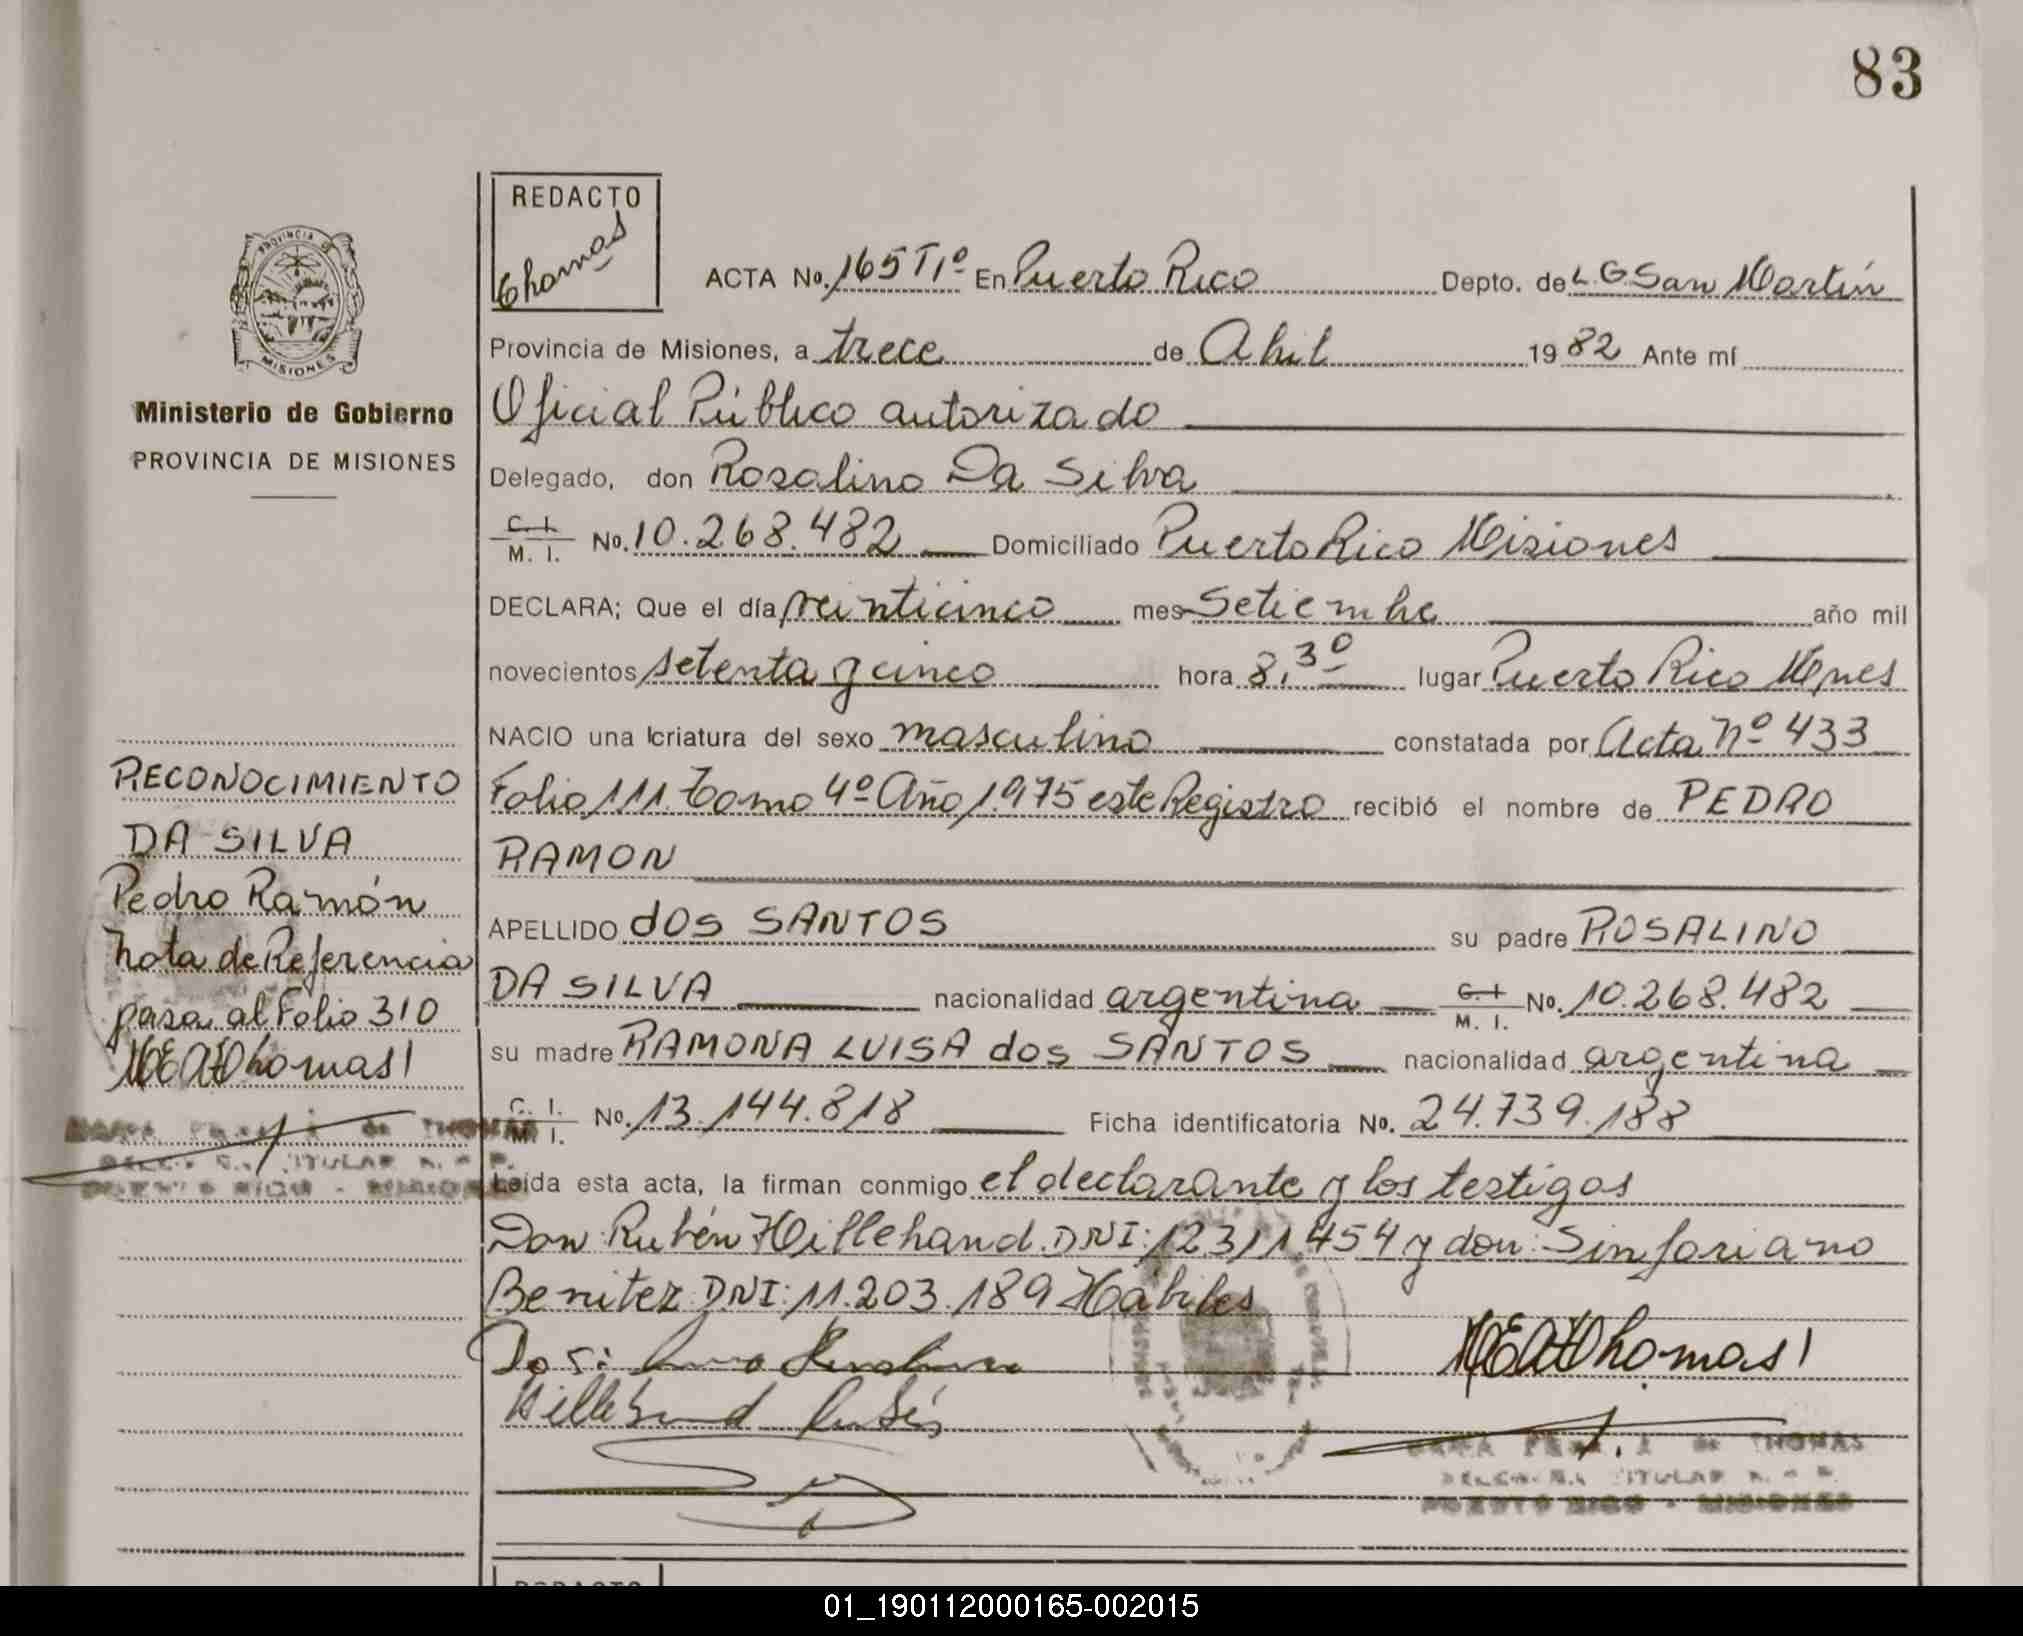 83
REDACTO
Thomas
PROVINCIA DE
MISIONES
Ministerio de Gobierno
PROVINCIA DE MISIONES
ACTA No. 165 T1º En Puerto Rico Depto. de L.G. San Martín
Provincia de Misiones, a trece de Abril 1982 Ante mí
Oficial Público autorizado
Delegado, don Rosalino Da Silva
C. I. M. I. No. 10.268.482 Domiciliado Puerto Rico Misiones
DECLARA; Que el día veinticinco mes Setiembre año mil
novecientos setenta y cinco hora 8,30 lugar Puerto Rico Mnes
NACIO una criatura del sexo masculino constatada por Acta Nº 433
Folio 111. Tomo 4º Año 1975 este Registro recibió el nombre de PEDRO
RAMON
APELLIDO dOS SANTOS su padre ROSALINO
DA SILVA nacionalidad argentina C. I. M. I. No. 10.268.482
su madre RAMONA LUISA dos SANTOS nacionalidad argentina
C. I. M. I. No. 13.144.818 Ficha identificatoria No. 24.739.188
Leída esta acta, la firman conmigo el declarante y los testigos
Don Rubén Hillebrand. DNI: 12.311.454 y don: Sinforiano
Benitez DNI: 11.203.189 Hábiles
MEAThomas
Hillebrand Rubén
de THOMAS
TITULAR
PUERTO RICO - MISIONES
RECONOCIMIENTO
DA SILVA
Pedro Ramón
Nota de Referencia
pasa al Folio 310
MEAThomas
de THOMAS
TITULAR
PUERTO RICO - MISIONES
REDACTO
01_190112000165-002015